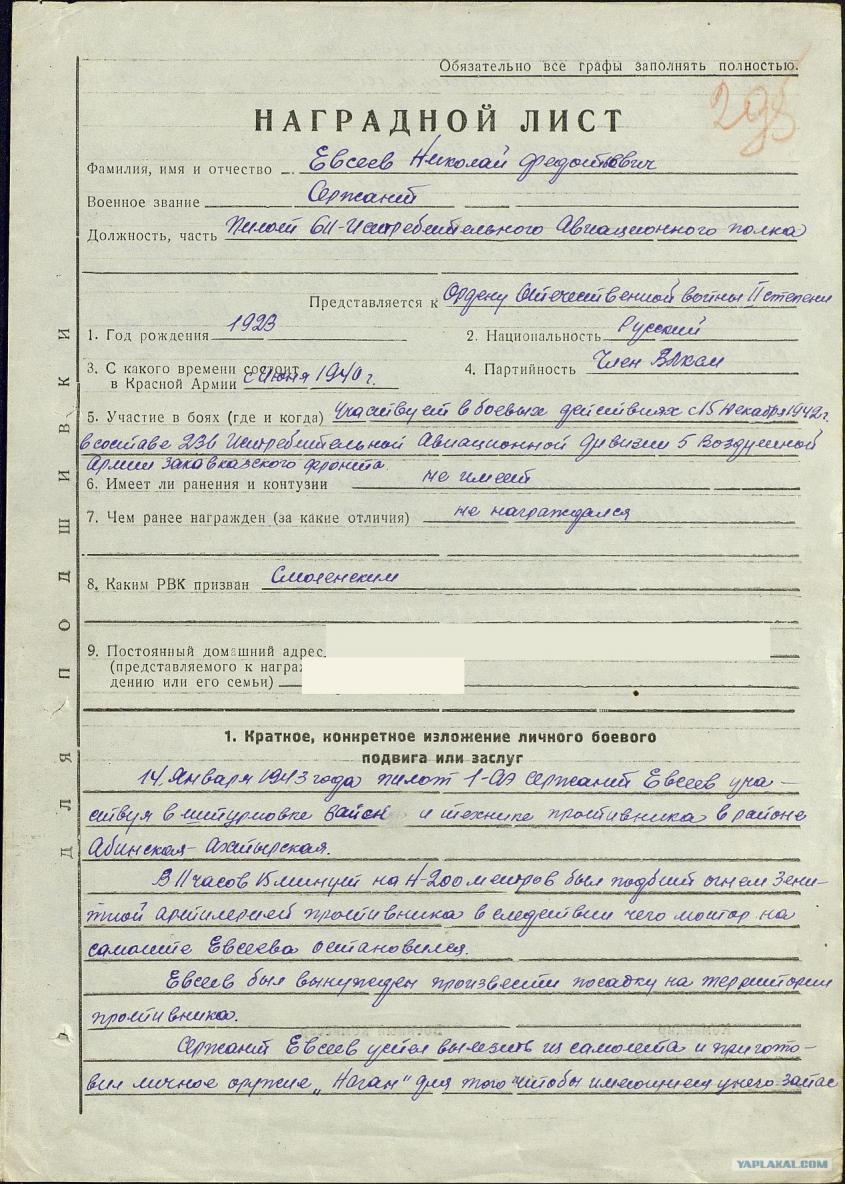 Обязательно все графы заполнять полностью.
НАГРАДНОЙ ЛИСТ
Фамилия, имя и отчество Евсеев Николай Федотович
Военное звание Сержант
Должность, часть Пилот 611-Истребительного Авиационного полка
Представляется к Ордену Отечественной войны II степени
1. Год рождения 1923 2. Национальность Русский
3. С какого времени состоит
в Красной Армии с Июня 1940 г. 4. Партийность Член ВЛКСМ
5. Участие в боях (где и когда) Участвует в боевых действиях с 15 декабря 1942 г.
в составе 236 Истребительной Авиационной дивизии 5 Воздушной
Армии Закавказского фронта.
6. Имеет ли ранения и контузии не имеет
7. Чем ранее награжден (за какие отличия) не награждался
8. Каким РВК призван Смоленским
9. Постоянный домашний адрес
(представляемого к награж
дению или его семьи)
1. Краткое, конкретное изложение личного боевого
подвига или заслуг
14. Января 1943 года пилот 1-АЭ сержант Евсеев уча-
ствуя в штурмовке войск и технике противника в районе
Абинская-Ахтырская.
В 11 часов 15 минут на Н-200 метров был подбит огнем зени-
тной артилерией противника в следствии чего мотор на
самолете Евсеева остановился.
Евсеев был вынужден произвести посадку на территории
противника.
Сержант Евсеев успел вылезить из самолета и пригото-
вил личное оружие „Наган" для того чтобы имеющиеся у него запас
ДЛЯ ПОДШИВКИ
YAPLAKAL.COM